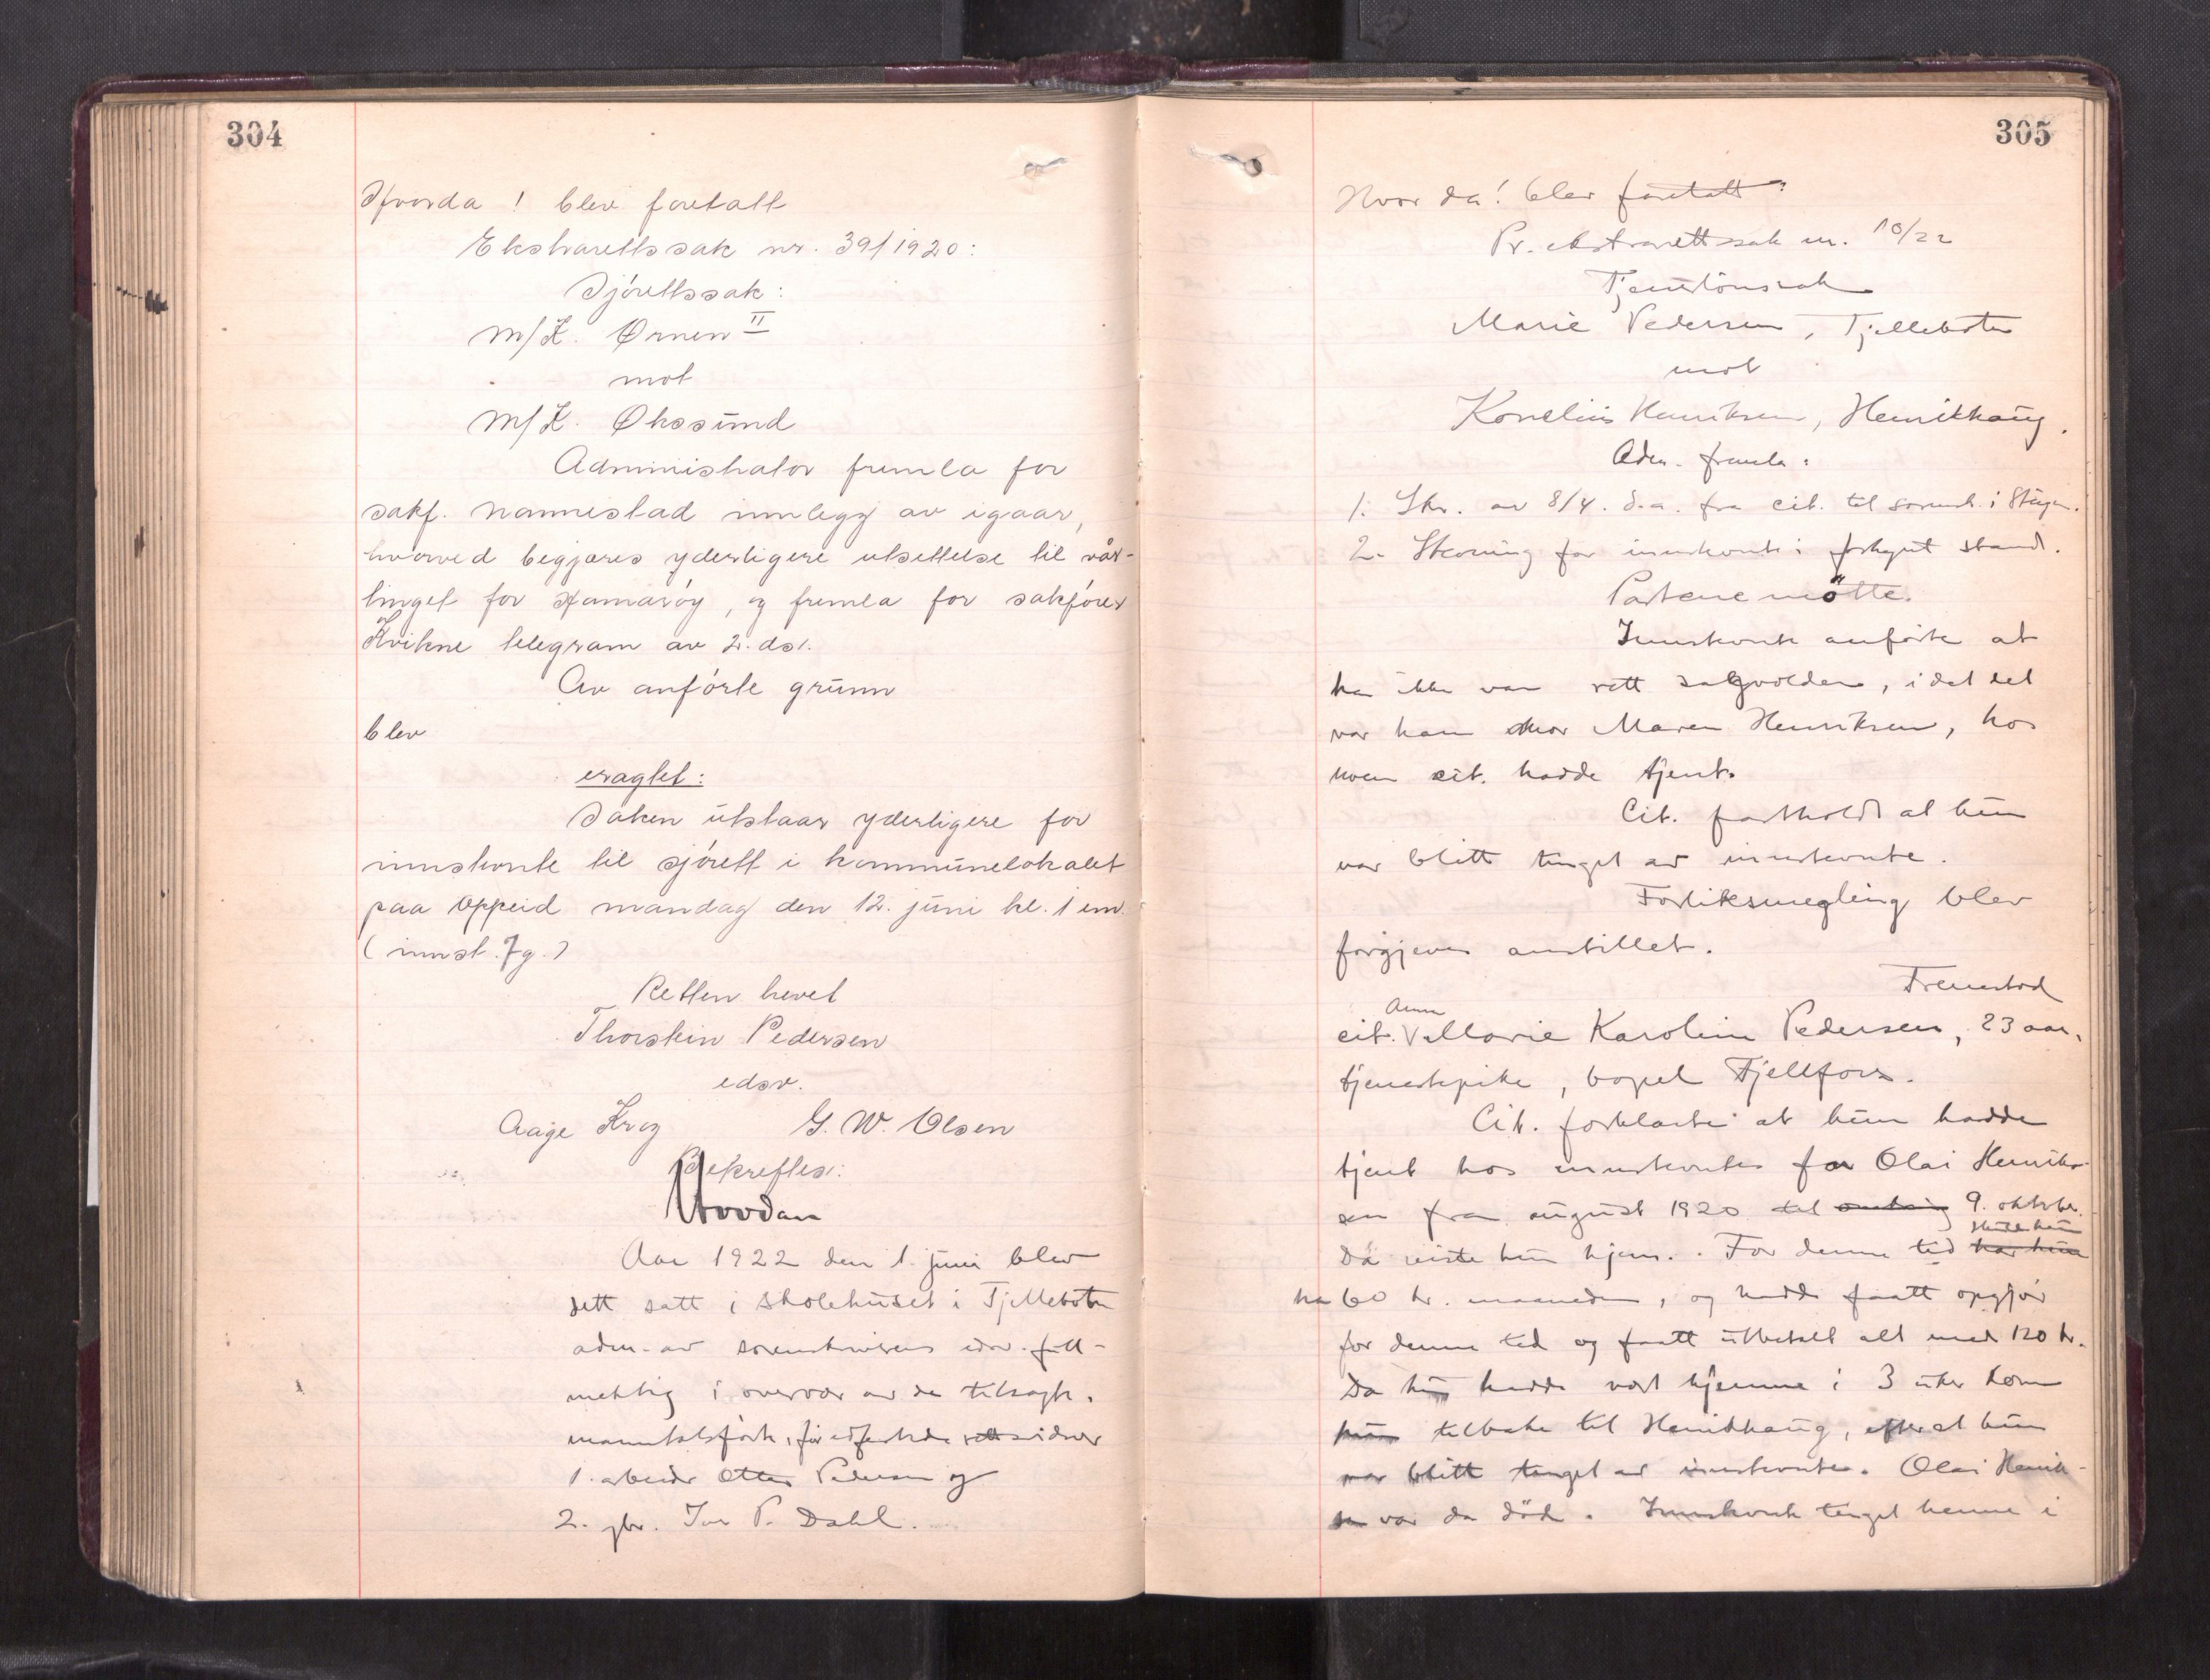 304
Hvorda! blev foretatt
Ekstrarettssak nr. 39/1920:
Sjørettssak:
M/K. Ørnen II
mot
M/K. Økssund
Administrator fremla for
sakf. Nannestad innlegg av igaar,
hvorved begjæres yderligere utsettelse til vår-
tinget for Hamarøy, og fremla for sakfører
Kvikne telegram av 2. ds.
Av anførte grunn
blev
eragtet:
Saken utstaar yderligere for
innstevnte til sjørett i kommunelokalet
paa Oppeid mandag den 12. juni kl. 1 em.
(innst. 7 g.)
Retten hevet
Thorstein Pedersen
edsv.
Aage Krog G. W. Olsen
Bekreftes:
Aar 1922 den 1. juni blev
rett satt i skolehuset i Tjellebotn
adm. av sorenskriverens edsv. full-
mektig i overvær av de tilsagte,
manntalsførte, før edfestede rettsvidner
1. arbeider Otter Pedersen og
2. gbr. Ivar P. Dahl.
305
Hvor da! blev foretatt:
Pr. ekstrarettssak nr. 10/22
Tjenerlønssak
Marie Pedersen, Tjellebotn
mot
Kornelius Henriksen, Henrikhaug.
Adm. fremla:
1. Skr. av 8/4. d.a. fra cit. til sorensk. i Steigen.
2. Stevning for innstevnte i forkynt stand.
Partene møtte.
Innstevnte anførte at
han ikke var rett saksvolder, idet det
var hans mor Maren Henriksen, hos
hvem cit. hadde tjent.
Cit. fastholdt at hun
var blitt tinget av innstevnte.
Forliksmegling blev
forgjeves anstillet.
Fremstod
Anna
cit. V Marie Karoline Pedersen, 23 aar,
tjenestepike, bopel Tjellfors.
Cit. forklarte at hun hadde
tjent hos innstevntes far Olai Henrik-
sen fra august 1920 til 9. oktober.
skulde hun
Da reiste hun hjem. For denne tid har hun
ha 60 kr. maaneden, og hadde faatt opgjør
for denne tid og faatt utbetalt alt med 120 kr.
Da hun hadde vært hjemme i 3 uker kom
hun tilbake til Henrikhaug, efter at hun
var blitt tinget av innstevnte. Olai Henrik-
sen var da død. Innstevnte tinget henne i